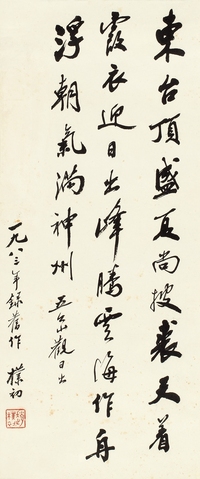 東台頂盛夏尚披裘天着
霞衣迎日出峰騰雲海作舟
浮朝氣滿神州 五台山觀日出
一九八三年錄舊作 樸初